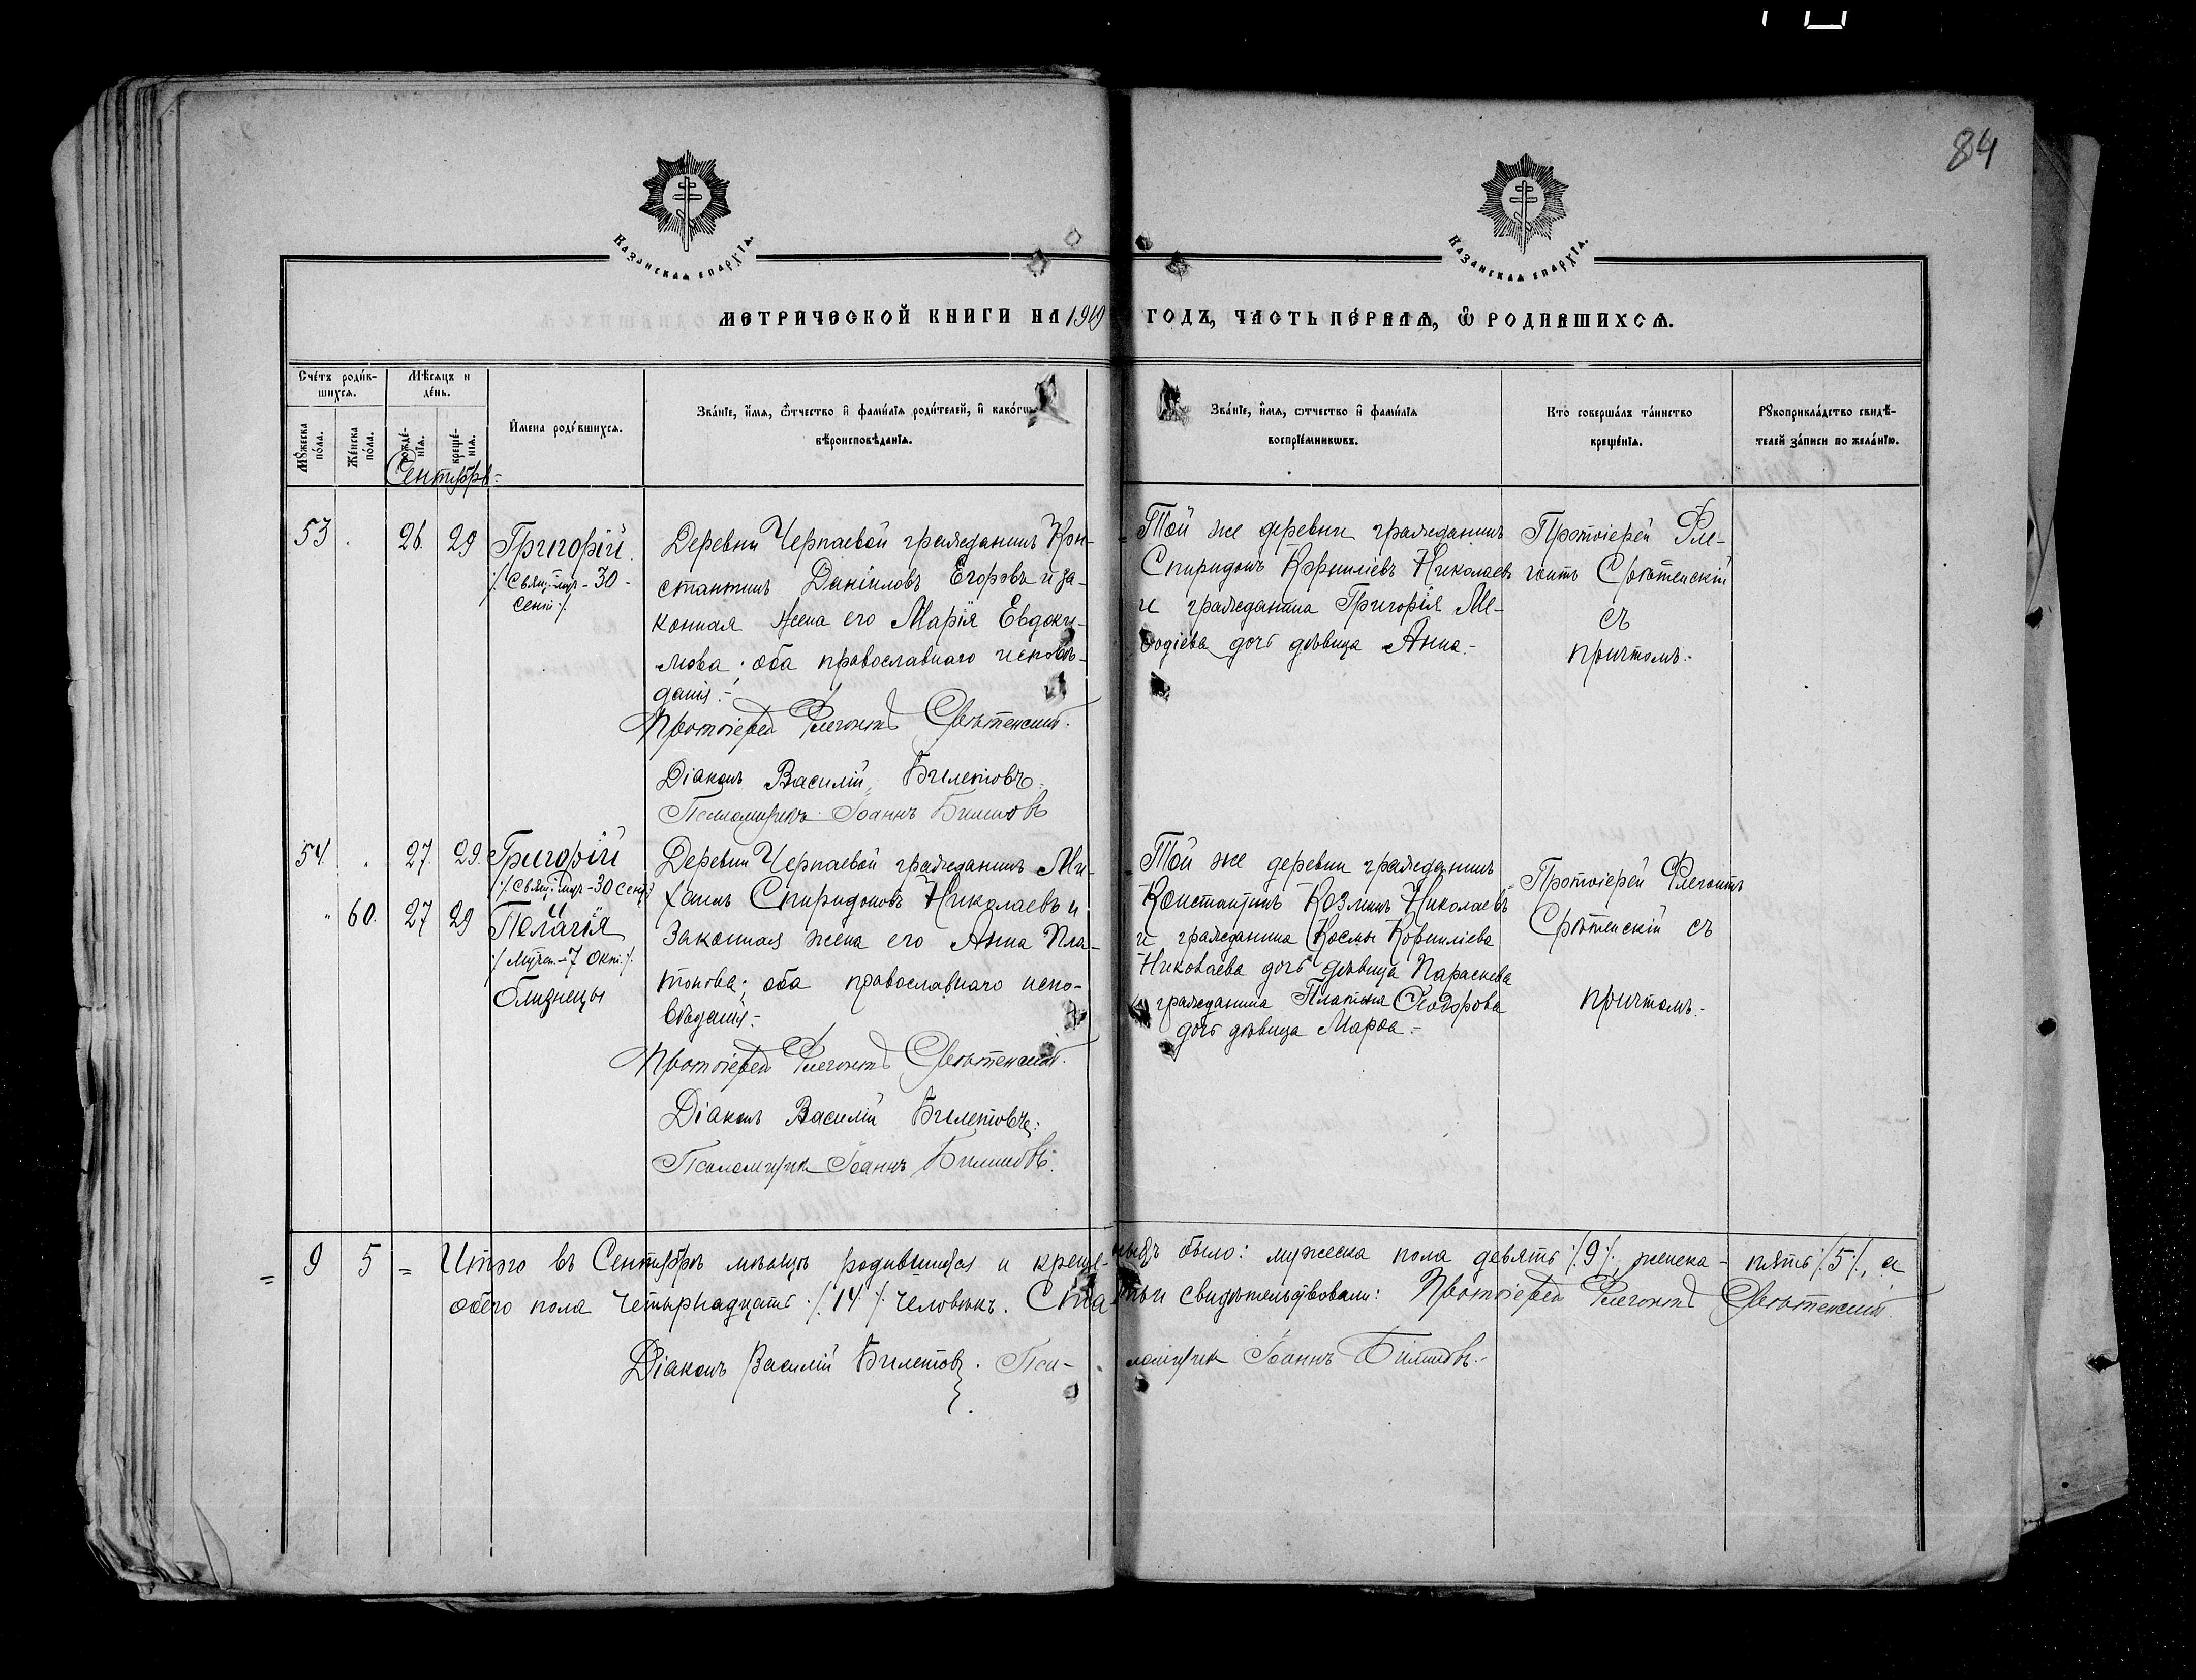 84
Казанская епархїя.
Казанская епархїя.
Метрической книги на 1919 годъ, часть первая, ѿ родившихся.
Счетъ родившихся.
Мѣсяцъ и день.
Мужеска пола.
Женска пола.
рожденїя.
крещенїя.
Имена родившихся.
Званїе, имя, ѿтчество и фамилїя родителей, и какогѡ
вѣроисповѣданїя.
Званїе, имя, отчество и фамилїя
воспрїемникѡвъ.
Кто совершалъ таинство
крещенїя.
Рукоприкладство свидѣ-
телей записи по желанїю.
Сентябрь
53 26. 29 Григорій
/. Свящ. муч. - 30 -
Сент /.
Деревни Черпаевой гражданинъ Кон-
стантинъ Даніиловъ Егоровъ и за-
конная жена его Марія Евдоки-
мова; оба православнаго исповѣ-
данія.-
Протоіерей Флегонтъ Срѣтенскій.
Діаконъ Василій Билетовъ.
Псаломщикъ Іоаннъ Билитовъ
Той же деревни гражданинъ
Спиридонъ Корниліевъ Николаевъ
и гражданина Григорія Ме-
ѳодіева дочь дѣвица Анна.-
Протоіерей Фле-
гонтъ Срѣтенскій
съ
причтомъ.-
54. 27. 29. Григорій
/. Свящ. муч. - 30 Сент./
и
" 60. 27 29 Пелагія
/. Мучен. - 7 Окт. /.
близнецы
Деревни Черпаевой гражданинъ Ми-
хаилъ Спиридоновъ Николаевъ и
законная жена его Анна Пла-
тонова; оба православнаго испо-
вѣданія.-
Протоіерей Флегонтъ Срѣтенскій.
Діаконъ Василій Билетовъ.
Псаломщикъ Іоаннъ Билитовъ.
Той же деревни гражданинъ
Константинъ Козминъ Николаевъ
и гражданина Космы Корниліева
Николаева дочь дѣвица Параскева
гражданина Платона Ѳеодорова
дочь дѣвица Марѳа.-
Протоіерей Флегонтъ
Срѣтенскій съ
причтомъ.-
= 9 5 = Итого въ Сентябрѣ мѣсяцѣ родившихся и креще-ныхъ было: мужеска пола девять /.9./, женска - пять /.5./, а
обоего пола четырнадцать /.14./ человѣкъ. Статьи свидѣтельствовали: Протоіерей Флегонтъ Срѣтенскій.
Діаконъ Василій Билетовъ. Пса-ломщикъ Іоаннъ Билитовъ.-